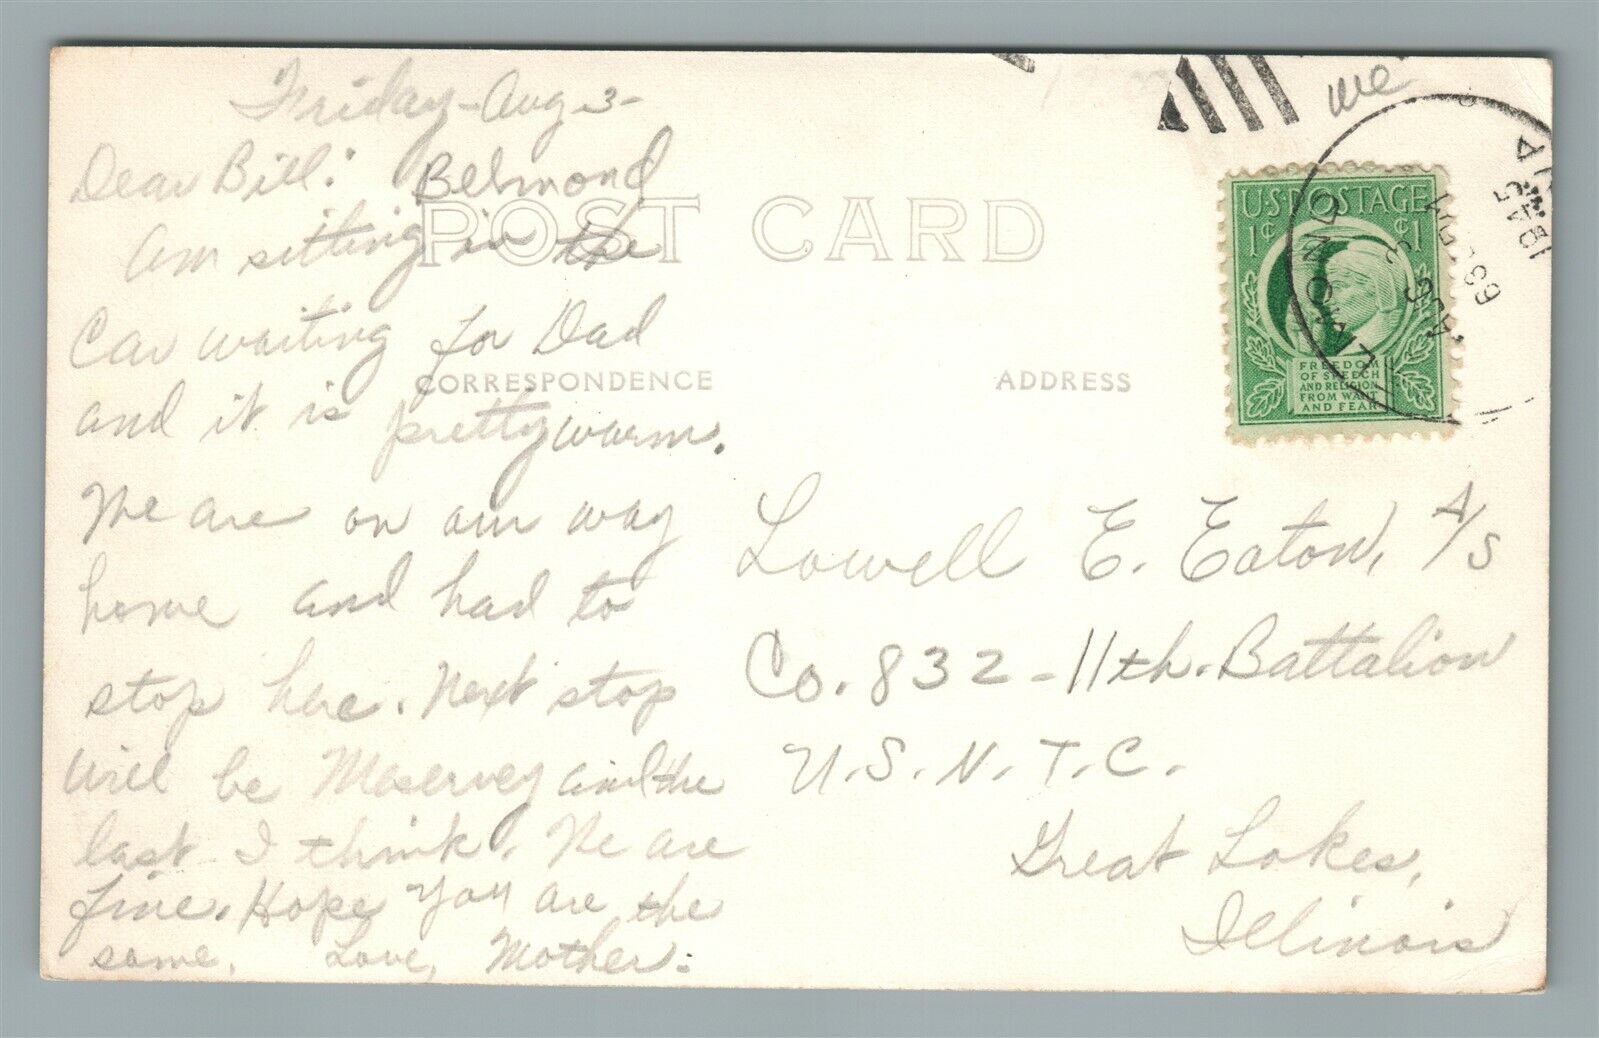 Friday - Aug 3 -
Dear Bill: Belmond
Am sitting in the
Car waiting for Dad
and it is pretty warm.
We are on our way
home and had to
stop here. Next stop
will be Meservey and the
last I think. We are
fine. Hope you are the
same. Love, Mother.
POST CARD
CORRESPONDENCE
ADDRESS
me
U.S. POSTAGE
1¢ ¢1
FREEDOM
OF SPEECH
AND RELIGION,
FROM WANT
AND FEAR
AUG
3
Lowell E. Eaton, A/S
Co. 832 - 11th. Battalion
U.S.N.T.C.
Great Lakes,
Illinois